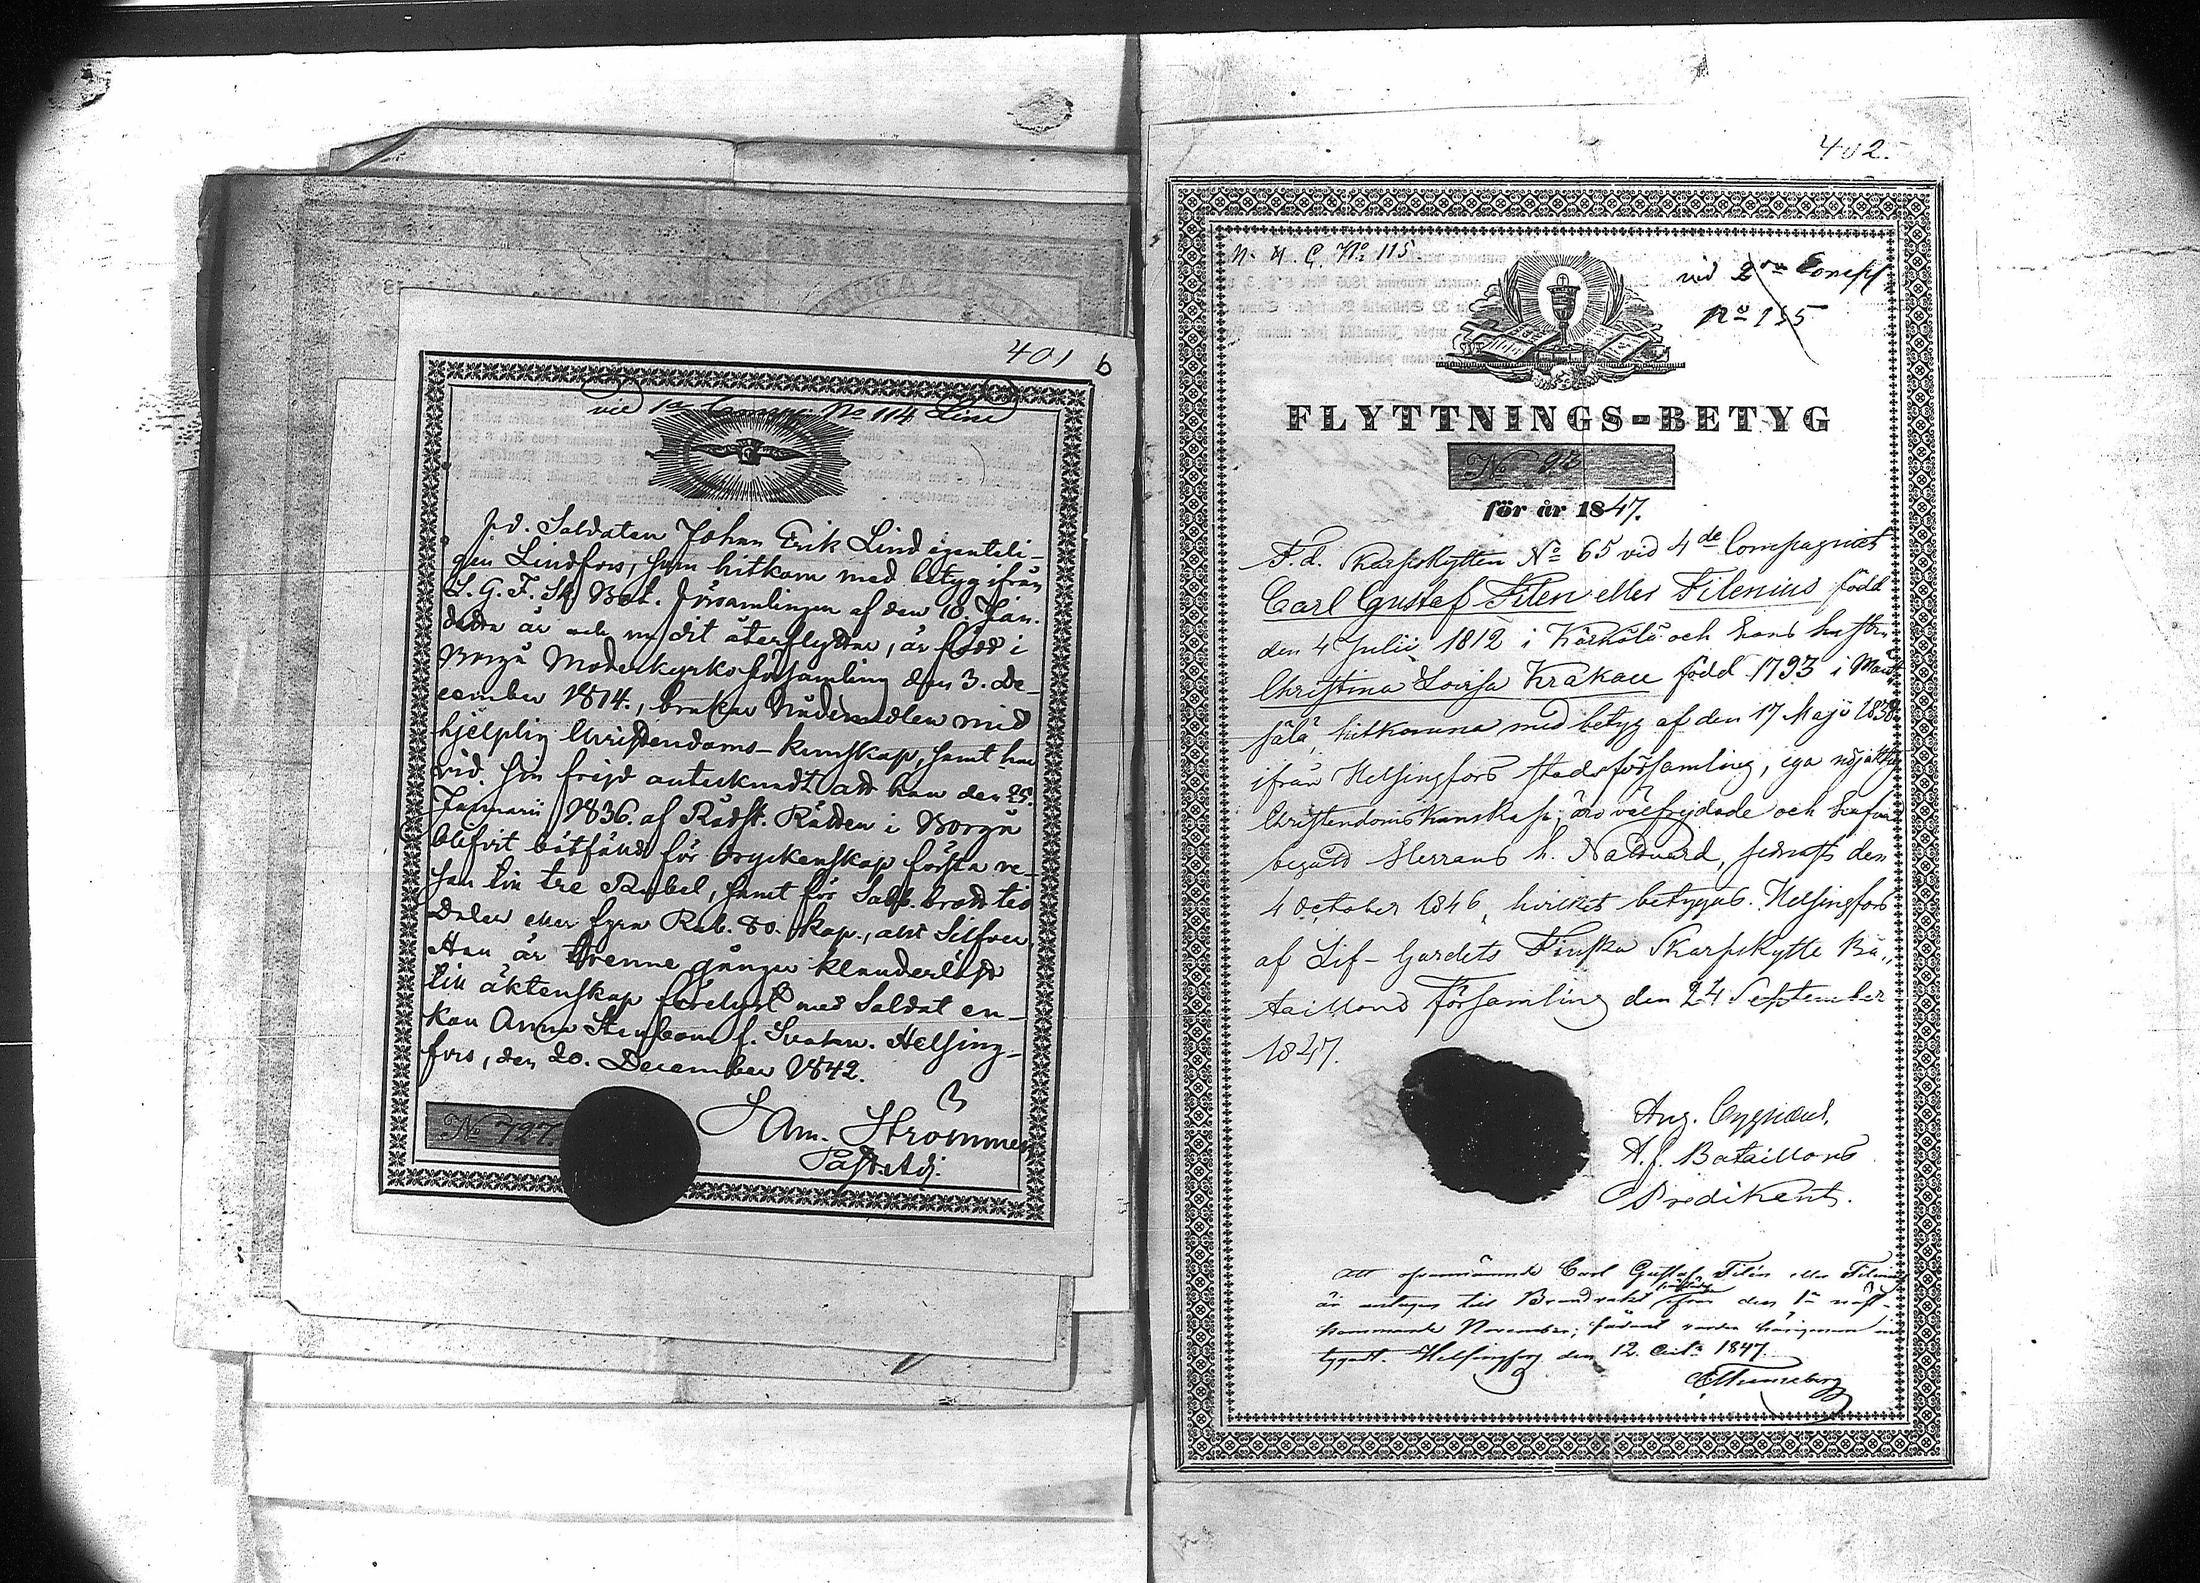 401 b
vid 1a Comp. No 114 Lind
f.d. Soldaten Johan Erik Lind egenteli-
gen Lindfors, som hitkom med betyg ifrån
L. G. F. Sk. Bat. församlingen af den 10. Jan.
detta år och nu dit återflyttar, är född i
Borgå Moderkyrkoförsamling den 3. De-
cember 1814., brukar Nådemedlen med
hjelplig Christendoms-kunskap, samt har
vid sin frejd anteknadt att han den 25.
Januarii 1836. af Rådst. Rätten i Borgå
blifvit bötfäld för dryckenskap första re-
san till tre Rubel, samt för Sabb. brott tio
daler eller fyra Rub. 80. kop., allt Silfver.
Han är trenne gånger klanderlöst
till äktenskap förelyst med Soldat en-
kan Anna Stenbom f. Svahn. Helsing-
fors, den 20. December 1842.
No 727.
Sam. Strömmer
Past. Adj.
402.
N. H. C. No 115.
vid 2ra Comp
No 155
FLYTTNINGS-BETYG
No 92
för år 1847.
F. d. Skarpskytten No 65 vid 4de Compagniet
Carl Gustaf Filen eller Filenius född
den 4 Julii 1812 i Kärkölä och hans hustru
Christina Lovisa Krakau född 1793 i Mänt
sälä, hitkomna med betyg af den 17 Maji 1838
ifrån Helsingfors stadsförsamling, ega nöjaktig
Christendomskunskap; äro välfrejdade och hafva
begått Herrans h. Nattvard, sednast den
4 October 1846, hvilket betygas. Helsingfors
af Lif-Gardets Finska Skarpskytte Ba„
taillons församling den 24 September
1847.
Aug. Cygnæus.
A.f. Bataillons
Predikant.
Att ofvannämnde Carl Gustaf Filén eller Filenius
är antagen till Brandvakt ifrån den 1a näst-
kommande November; sådant varder härigenom in
tygadt. Helsingfors den 12. Octbr 1847.